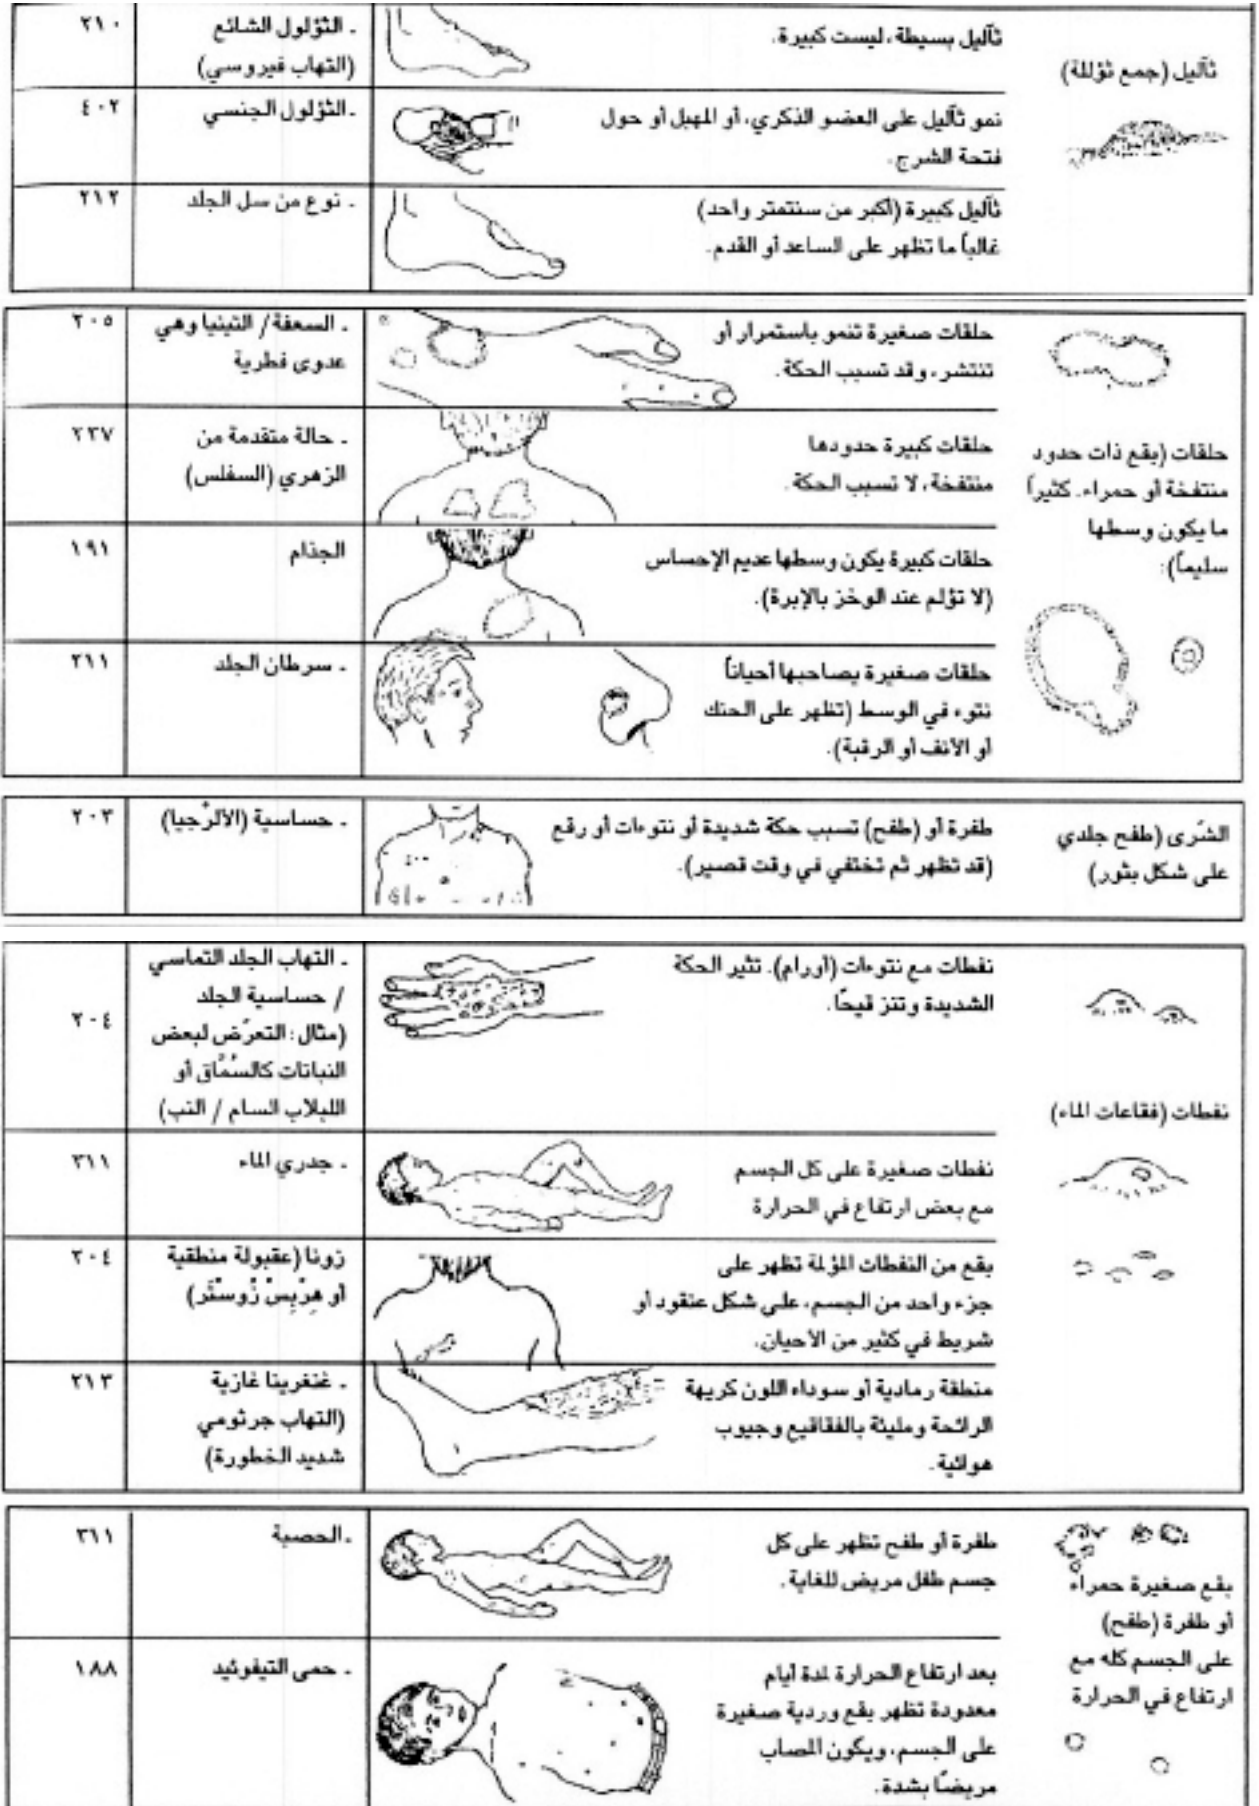 ثآليل (جمع ثؤللة)
ثآليل بسيطة، ليست كبيرة.
. الثؤلول الشائع
(التهاب فيروسي)
٢١٠
نمو ثآليل على العضو الذكري، أو المهبل أو حول
فتحة الشرج.
.الثؤلول الجنسي
٤٠٢
ثآليل كبيرة (أكبر من سنتمتر واحد)
غالباً ما تظهر على الساعد أو القدم.
. نوع من سل الجلد
٢١٢
حلقات (بقع ذات حدود
منتفخة أو حمراء. كثيراً
ما يكون وسطها
سليماً):
حلقات صغيرة تنمو باستمرار أو
تنتشر، وقد تسبب الحكة.
. السعفة/ التينيا وهي
عدوى فطرية
٢٠٥
حلقات كبيرة حدودها
منتفخة، لا تسبب الحكة.
. حالة متقدمة من
الزهري (السفلس)
٢٣٧
حلقات كبيرة يكون وسطها عديم الإحساس
(لا تؤلم عند الوخز بالإبرة).
الجذام
١٩١
حلقات صغيرة يصاحبها أحياناً
نتوء في الوسط (تظهر على الحنك
أو الأنف أو الرقبة).
. سرطان الجلد
٢١١
الشّرى (طفح جلدي
على شكل بثور)
طفرة أو (طفح) تسبب حكة شديدة أو نتوءات أو رقع
(قد تظهر ثم تختفي في وقت قصير).
. حساسية (الألرْجيا)
٢٠٣
نفطات (فقاعات الماء)
نفطات مع نتوءات (أورام). تثير الحكة
الشديدة وتنز قيحًا.
. التهاب الجلد التماسي
/ حساسية الجلد
(مثال: التعرّض لبعض
النباتات كالسُمّاق أو
اللبلاب السام / التب)
٢٠٤
نفطات صغيرة على كل الجسم
مع بعض ارتفاع في الحرارة
. جدري الماء
٣١١
بقع من النفطات المؤلمة تظهر على
جزء واحد من الجسم، على شكل عنقود أو
شريط في كثير من الأحيان.
زونا (عقبولة منطقية
أو هِرْبِسْ زُوسْتَر)
٢٠٤
منطقة رمادية أو سوداء اللون كريهة
الرائحة ومليئة بالفقاقيع وجيوب
هوائية.
. غنغرينا غازية
(التهاب جرثومي
شديد الخطورة)
٢١٣
بقع صغيرة حمراء
أو طفرة (طفح)
على الجسم كله مع
ارتفاع في الحرارة
طفرة أو طفح تظهر على كل
جسم طفل مريض للغاية.
.الحصبة
٣١١
بعد ارتفاع الحرارة لمدة أيام
معدودة تظهر بقع وردية صغيرة
على الجسم، ويكون المصاب
مريضًا بشدة.
. حمى التيفوئيد
١٨٨